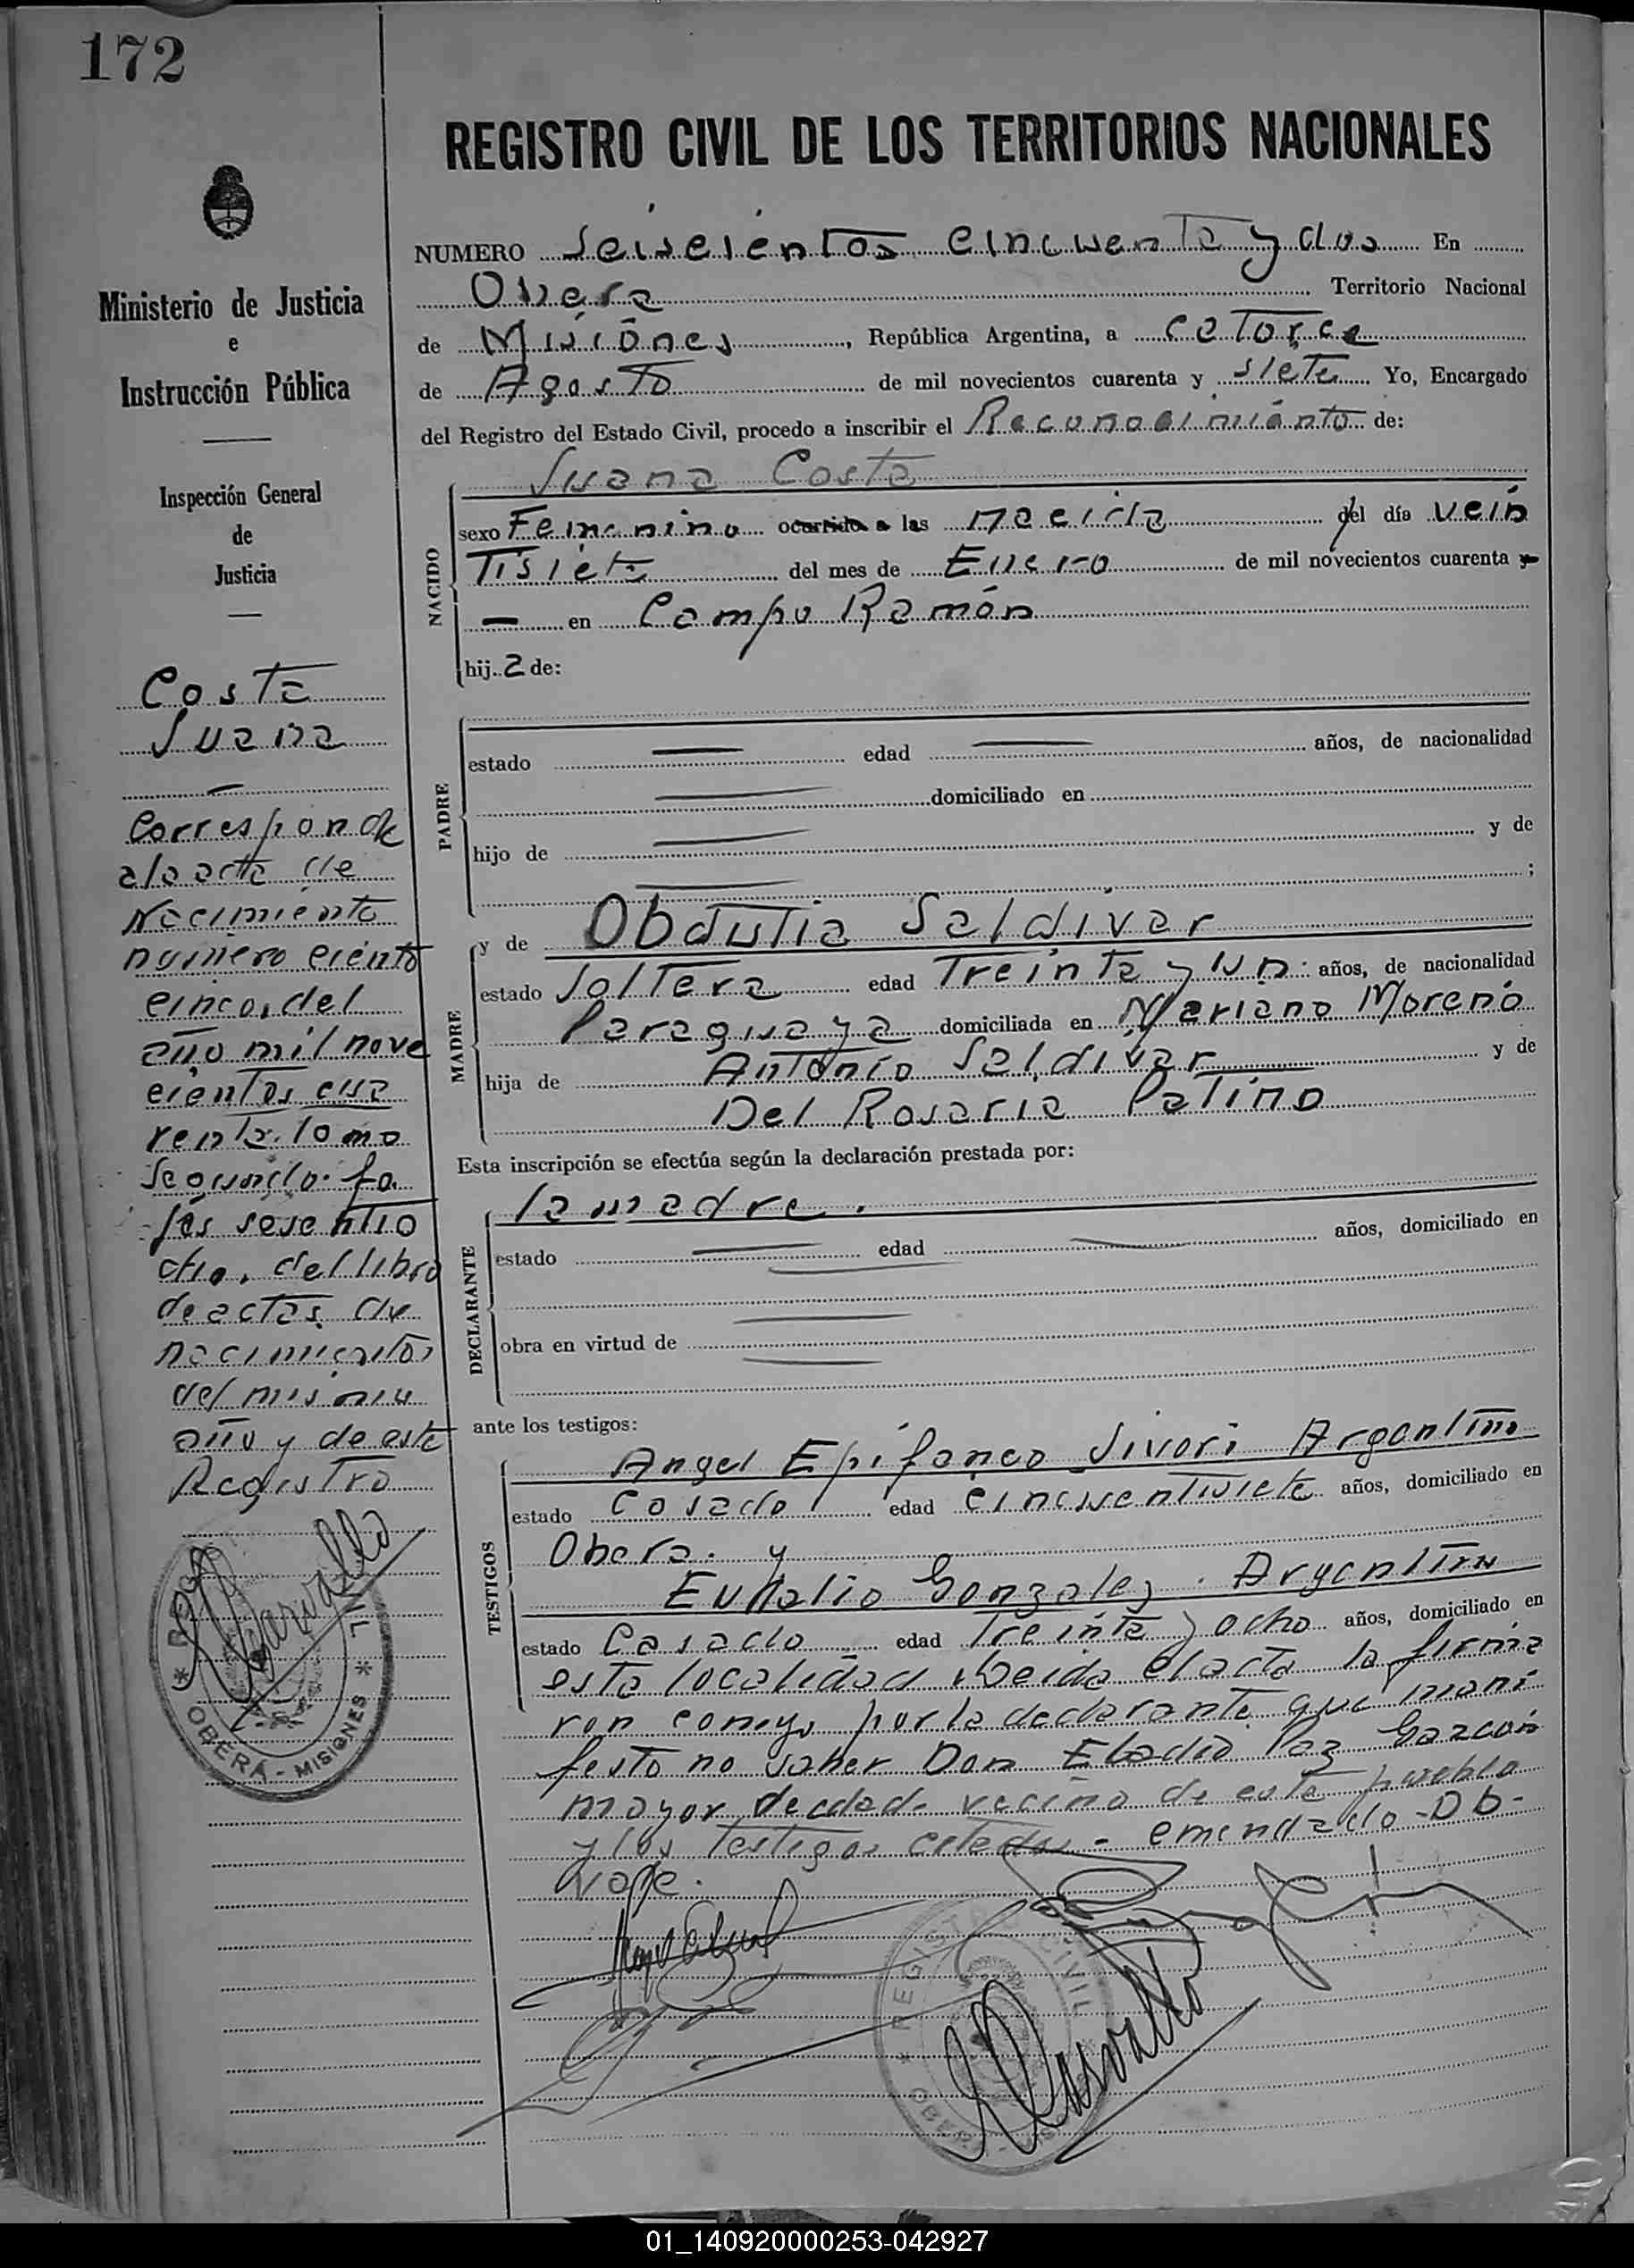 172
REGISTRO CIVIL DE LOS TERRITORIOS NACIONALES
Ministerio de Justicia
e
Instrucción Pública
Inspección General
de
Justicia
Costa
Juana
Corresponde
al acta de
Nacimiento
numero ciento
cinco, del
año mil nove
cientos cua
renta. Tomo
segundo. fo
jas sesentio
cho, del libro
de actas de
nacimientos
del mismo
año y de este
Registro
REGISTRO CIVIL
* OBERÁ - MISIONES *
NUMERO Seiscientos cincuenta y dos En
Obera Territorio Nacional
de Misiones, República Argentina, a catorce
de Agosto de mil novecientos cuarenta y siete Yo, Encargado
del Registro del Estado Civil, procedo a inscribir el Reconocimiento de:
Juana Costa
NACIDO
sexo Femenino ocurrido a las nacida del día vein
tisiete del mes de Enero de mil novecientos cuarenta y
— en Campo Ramón
hij a de:
PADRE
estado — edad — años, de nacionalidad
— domiciliado en
hijo de — y de
— ;
MADRE
y de Obdulia Saldivar
estado Soltera edad Treinta y un años, de nacionalidad
Paraguaya domiciliada en Mariano Moreno
hija de Antonio Saldivar y de
Del Rosaria Patiño
Esta inscripción se efectúa según la declaración prestada por:
DECLARANTE
la madre.
estado — edad — años, domiciliado en
—
obra en virtud de —
—
ante los testigos:
TESTIGOS
Angel Epifaneo Sivori Argentino
estado Casado edad cincuentisiete años, domiciliado en
Obera. y
Eulalio Gonzalez. Argentino
estado Casado edad Treinta y ocho años, domiciliado en
esta localidad Leida el acta la firma
ron conmigo por la declarante que mani
festo no saber Don Eladio Paz Garzón
mayor de edad vecino de este pueblo
y los testigos citados - emendado - Ob -
Vale.
REGISTRO CIVIL
* OBERÁ - MISIONES
01_140920000253-042927